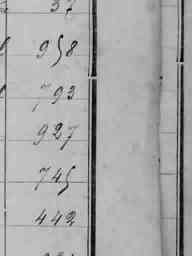 37
958
793
927
745
442